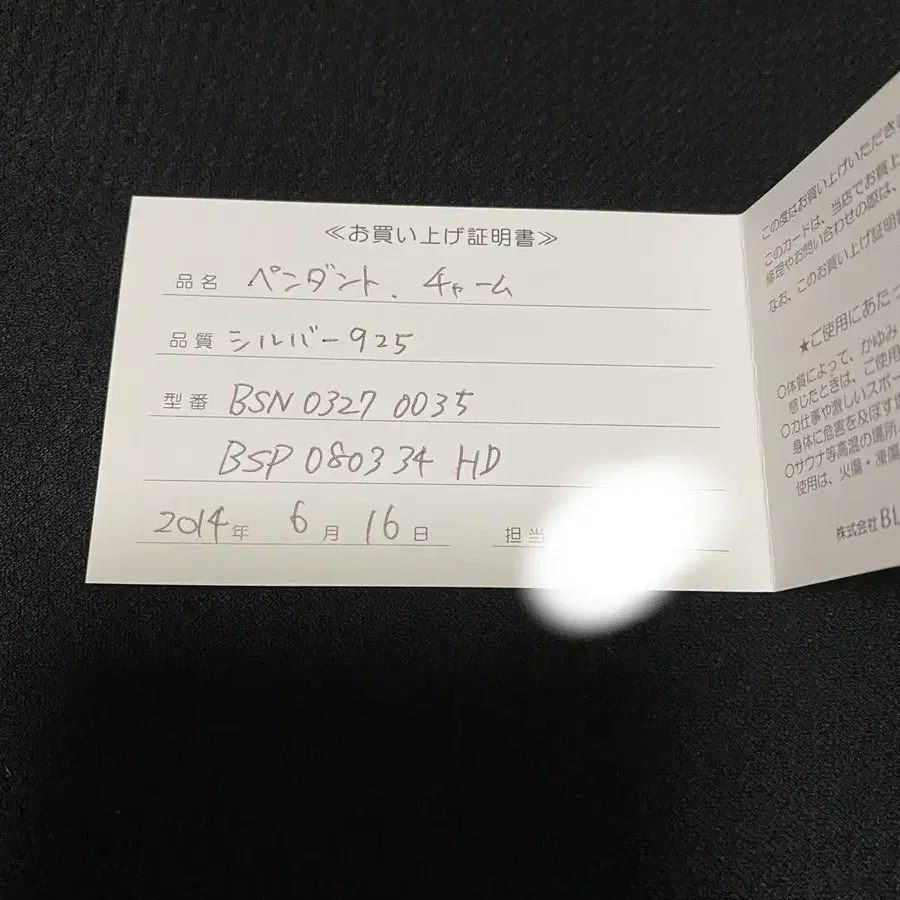 ≪お買い上げ証明書≫
品名 ペンダント、チャーム
品質 シルバー925
型番 BSN 0327 0035
BSP 080334 HD
2014年 6月 16日 担当
この度はお買い上げいただき
このカードは、当店でお買上
修理やお問い合わせの際は、
なお、このお買い上げ証明
★ご使用にあた
○体質によって、かゆみ
感じたときは、ご使用
○力仕事や激しいスポー
身体に危害を及ぼす
○サウナ等高温の場所、
使用は、火傷・凍傷
株式会社 BL